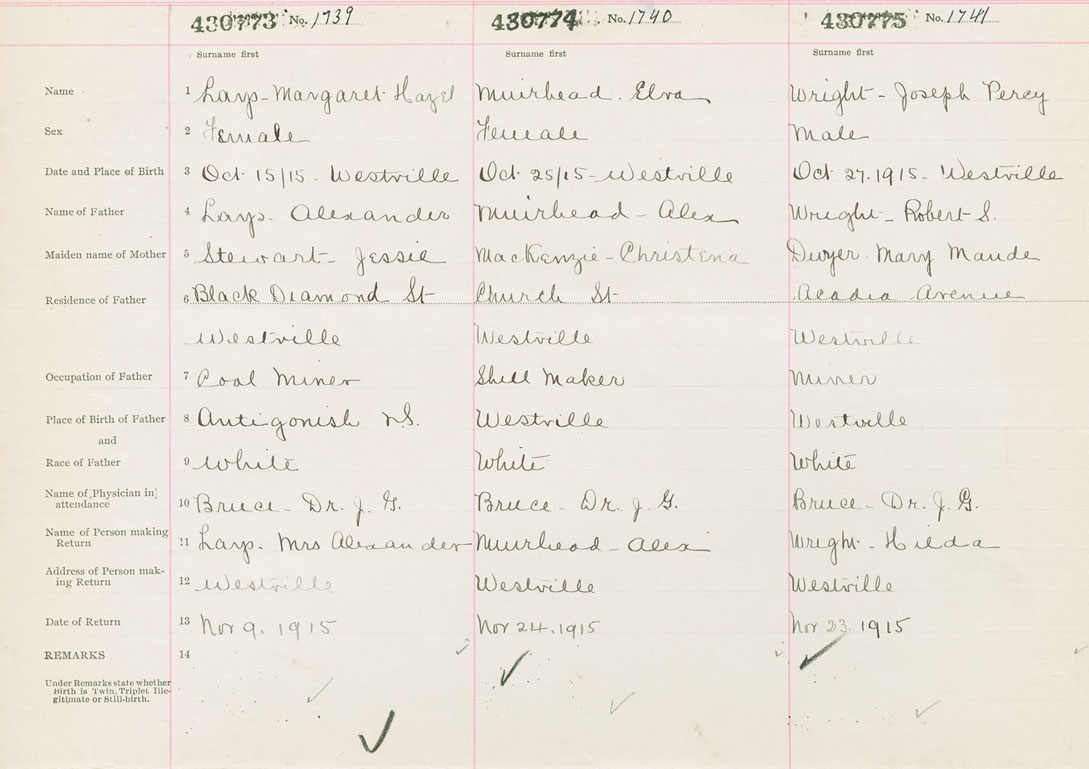 430773 No. 1739 430774 No. 1740 430775 No. 1741
Surname first Surname first Surname first
Name 1 Lays- Margaret Hazel Muirhead. Elva Wright - Joseph Percy
Sex 2 Female Female Male
Date and Place of Birth 3 Oct 15/15- Westville Oct 25/15-Westville Oct 27.1915- Westville
Name of Father 4 Lays- Alexander Muirhead - Alex Wright- Robert S.
Maiden name of Mother 5 Stewart- Jessie MacKenzie-Christena Dwyer. Mary Maude
Residence of Father 6 Black Diamond St Church St Acadia Avenue
Westville Westville Westville
Occupation of Father 7 Coal Miner Shell Maker Miner
Place of Birth of Father 8 Antigonish N.S. Westville Westville
and
Race of Father 9 White White White
Name of [Physician in]
attendance 10 Bruce- Dr. J. G. Bruce- Dr. J. G. Bruce- Dr. J. G.
Name of Person making
Return 11 Lays- Mrs Alexander Muirhead-Alex Wright- Hilda
Address of Person mak-
ing Return 12 Westville Westville Westville
Date of Return 13 Nov 9. 1915 Nov 24.1915 Nov 23. 1915
REMARKS 14
Under Remarks state whether
Birth is Twin, Triplet Ille-
gitimate or Still-birth.